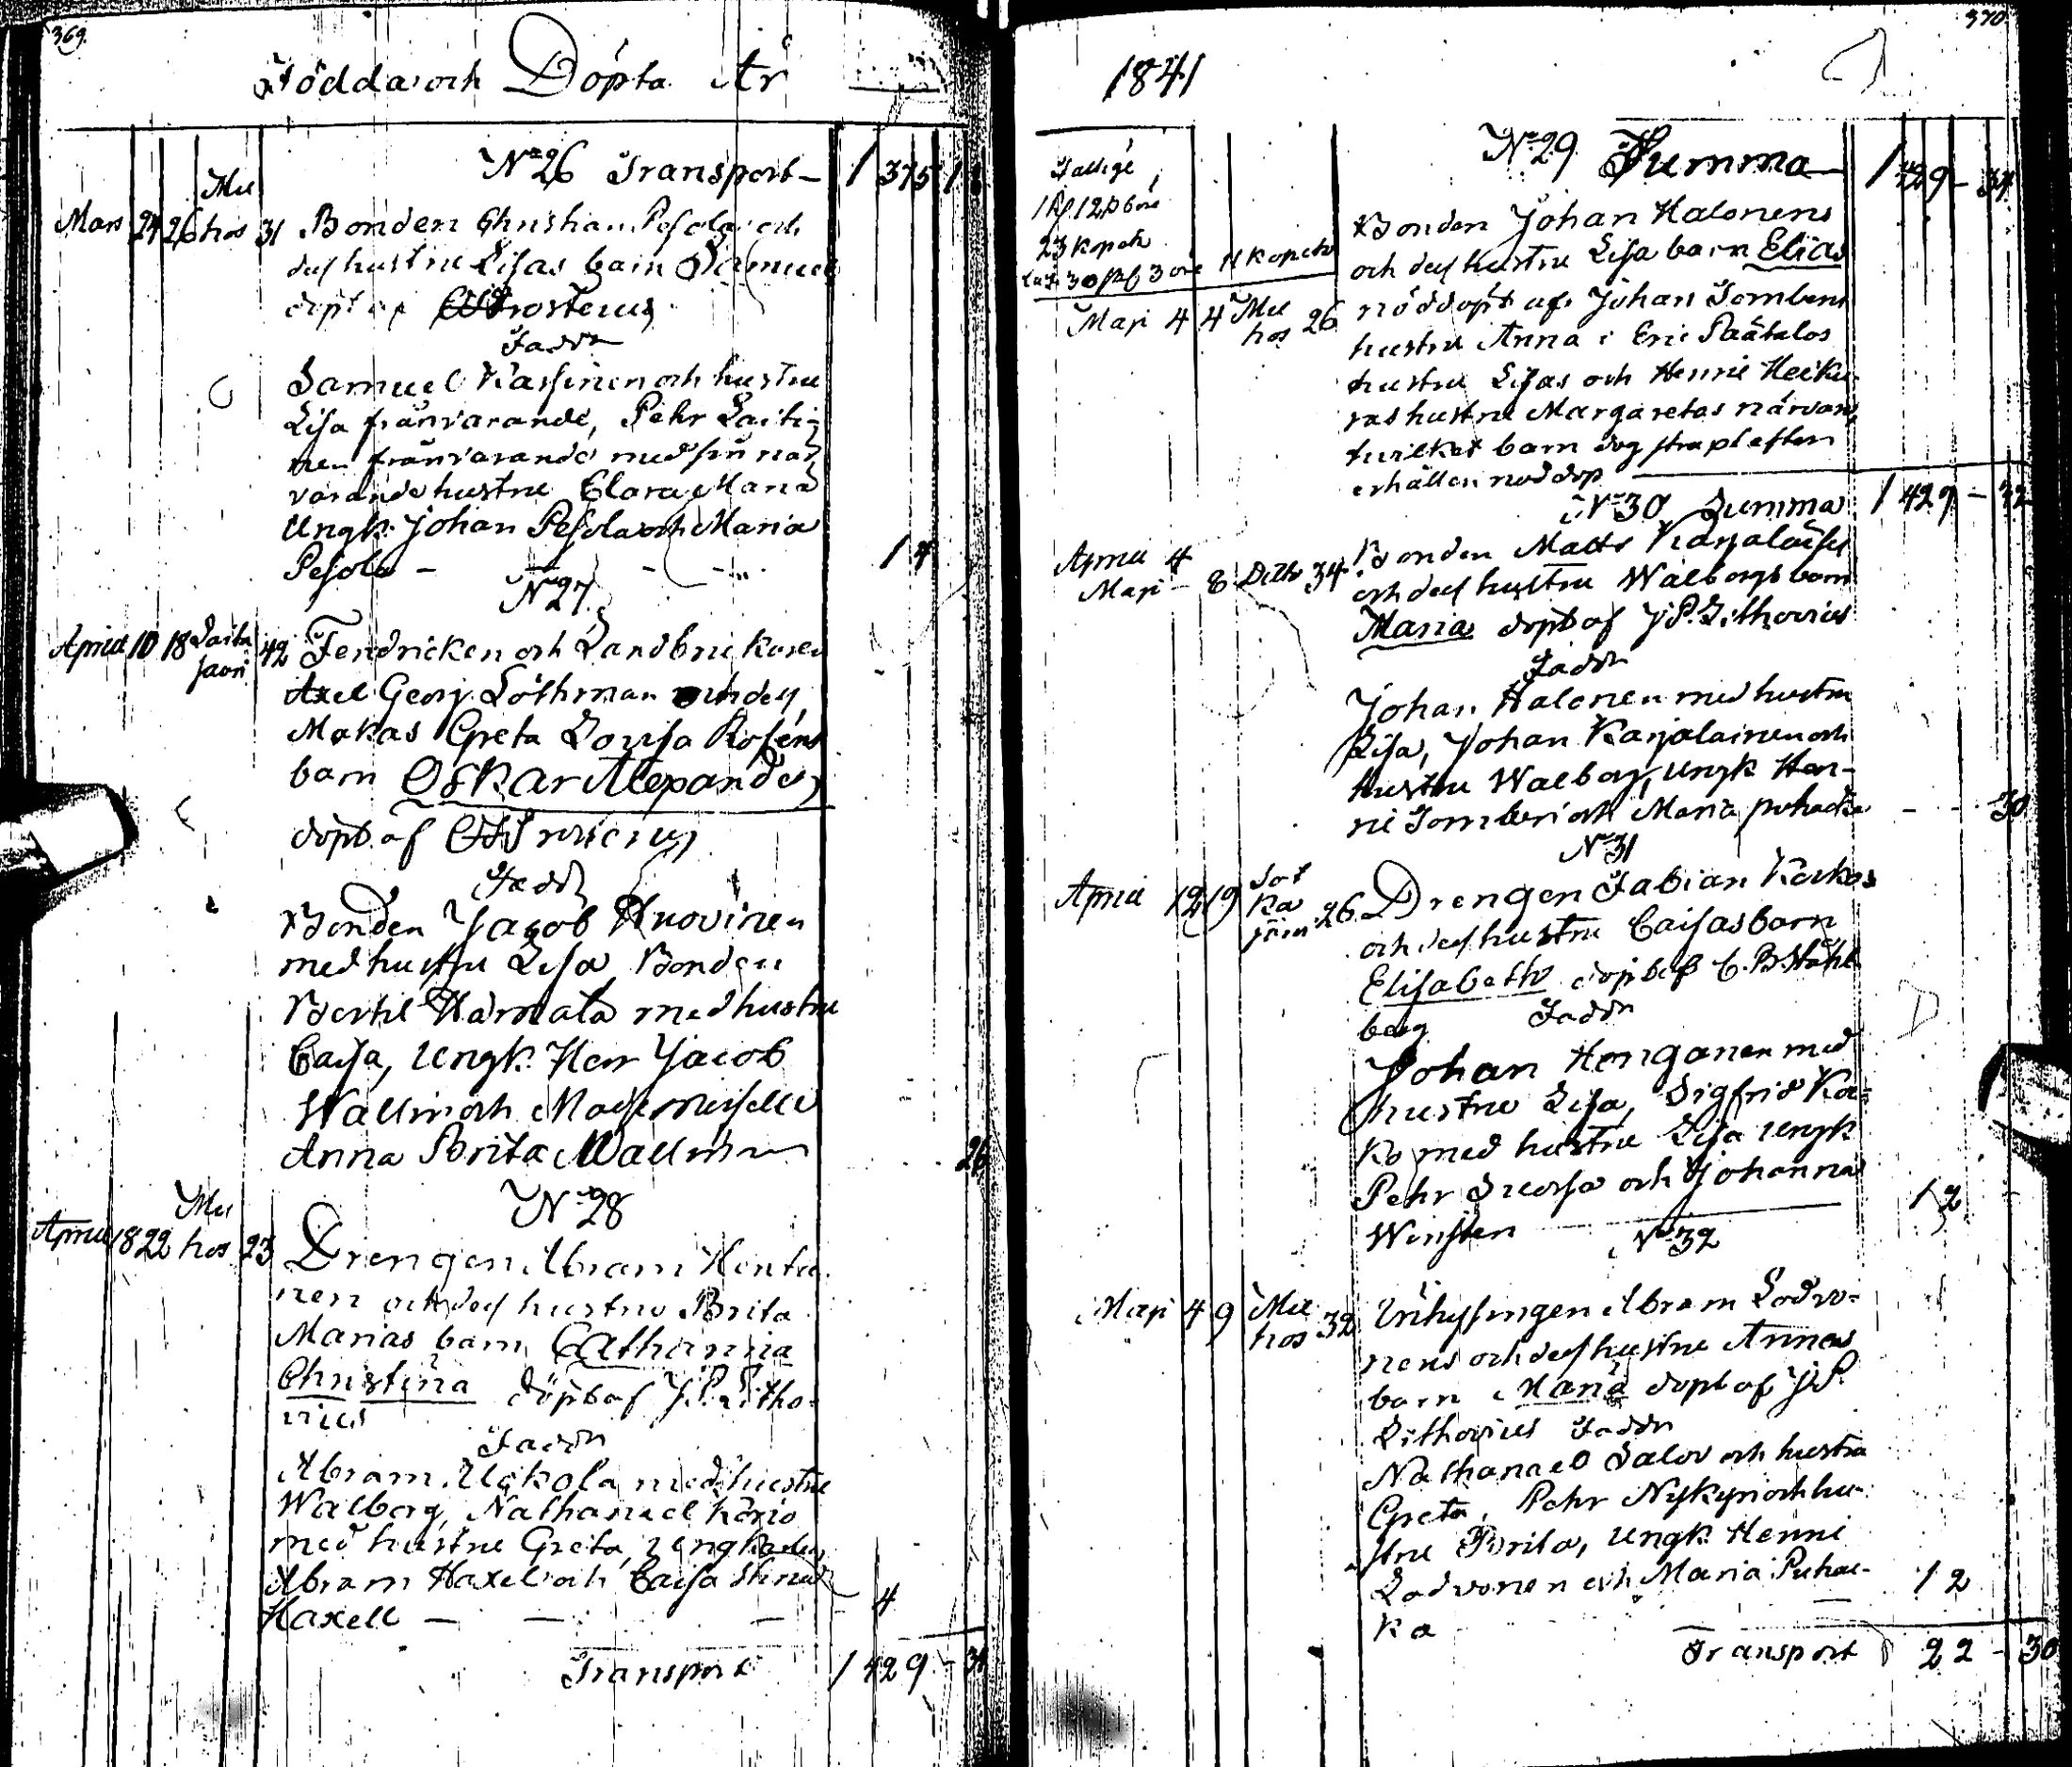 369.
Födda och Döpta År
No 26 Transport — 1 375
Mu
Mars 24 26 hos 31 Bonden Christian Pesola och
dess hustru Lisas barn Samuel
döpt af
Faddr
Samuel Kassinen och hustru
Lisa frånvarande, Pehr Laiti-
nen frånvarande med sin när
varande hustru Clara Maria
Ungk. Johan Pesola och Maria
Pesola — 14
No 27.
April 10 18 Saita
jaori 42 Fendricken och Landbrukaren
Axel Georg Löthman och dess
Makas Greta Lovisa Roséns
barn Oskar Alexander
döpt af
Faddr
Bonden Jacob Huovinen
med hustru Lisa Bonden
Bertil Härmälä med hustru
Caisa, Ungk. Herr Jacob
Wallin och Mademoiselle
Anna Brita Wallin 26
No 28
Mu
April 18 22 hos 23 Drengen Abram Hentu
nen och dess hustru Brita
Marias barn Catharina
Christina döpt af J.P. Litho-
vius
Faddr
Abram Uckola med hustru
Walborg, Nathanael
med hustru Greta, Ungkarlen
Abram Haxel och Caisa Stina
Haxell — — — 4
Transport 1 429 - 34
370.
1841
No 29 Summa 1 429 - 34
23 kopek
Bonden Johan Halonens
och dess hustru Lisa barn Elias
Maji 4 4 Mu
hos 26 nöddöpt af Johan Tomberi
hustru Anna i Eric Päätalos
hustru Lisas och Henric Heiku-
ras hustru Margaretas närvaro,
hvilket barn dog strax efter
erhållen nöddop
No 30 Summa 1 429 - 32
April 4
Maji - 8 Ditto 34 Bonden Matts Karjalaises
och dess hustru Walborgs barn
Maria döpt af J.P. Lithovius
Faddr
Johan Halonen med hustru
Lisa, Johan Karjalainen och
hustru Walborg, Ungk Hen-
ric Tomberi och Maria Puhacka - - 30
No 31
April 12 19 Sot
ka
26 Drengen Fabian
och dess hustru Caisas barn
Elisabeth döpt af C. B. Ståhl
berg Faddr
Johan Honganen med
hustru Lisa, Sigfrid Ka-
ko med hustru Lisa Ungk
Pehr och Johanna
Winsten 12
No 32
Maji 4 9 Mu
hos 32 Inhysingen Abram Lodvo-
nens och dess hustru Annas
barn Maria döpt af J.P.
Lithovius Faddr
Nathanael Salov och hustru
Greta, Pehr Nykyri och hu-
stru Brita, Ungk Henric
Lodvonen och Maria Puhac-
ka 12
Transport 22 - 30